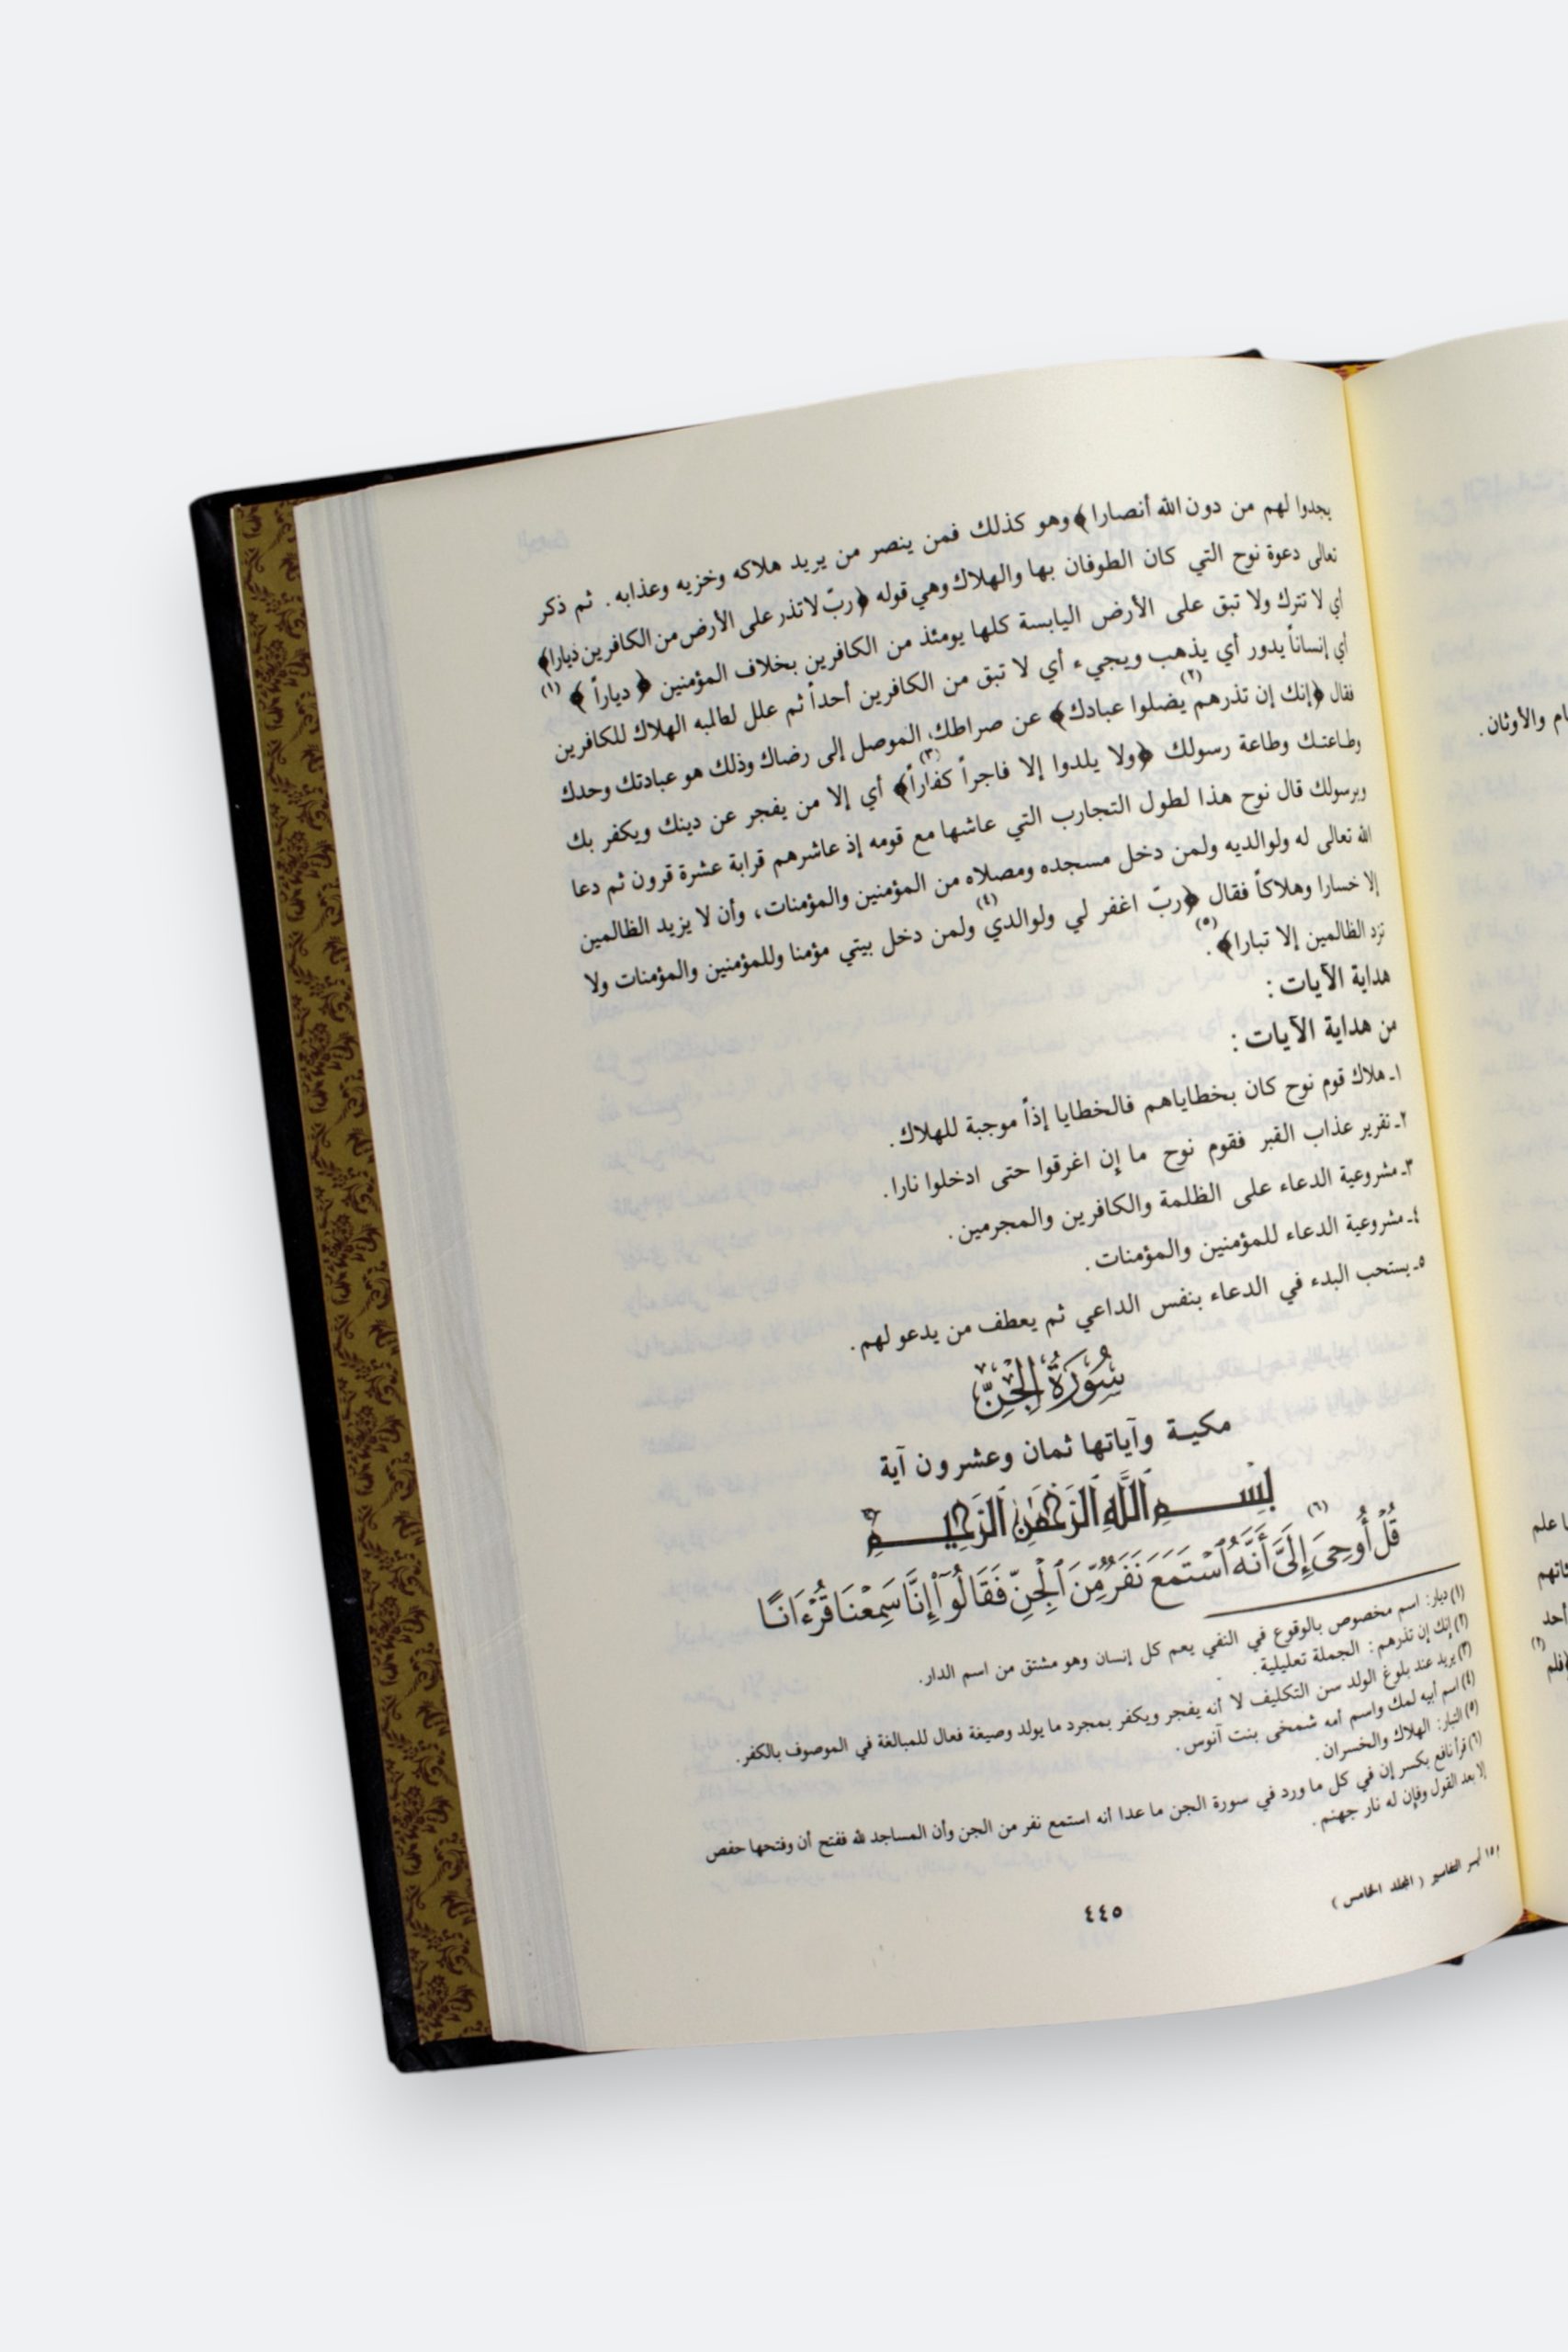 يجدوا لهم من دون الله أنصارا﴾ وهو كذلك فمن ينصر من يريد هلاكه وخزيه وعذابه. ثم ذكر
تعالى دعوة نوح التي كان الطوفان بها والهلاك وهي قوله ﴿ربّ لا تذر على الأرض من الكافرين ديارا﴾
أي لا تترك ولا تبق على الأرض اليابسة كلها يومئذ من الكافرين بخلاف المؤمنين ﴿دياراً﴾ (١)
أي إنساناً يدور أي يذهب ويجيء أي لا تبق من الكافرين أحداً ثم علل لطالبه الهلاك للكافرين
فقال ﴿إنك إن تذرهم (٢) يضلوا عبادك﴾ عن صراطك الموصل إلى رضاك وذلك هو عبادتك وحدك
وطاعتك وطاعة رسولك ﴿ولا يلدوا إلا فاجراً كفاراً (٣)﴾ أي إلا من يفجر عن دينك ويكفر بك
وبرسولك قال نوح هذا لطول التجارب التي عاشها مع قومه إذ عاشرهم قرابة عشرة قرون ثم دعا
الله تعالى له ولوالديه ولمن دخل مسجده ومصلاه من المؤمنين والمؤمنات، وأن لا يزيد الظالمين
إلا خسارا وهلاكاً فقال ﴿ربّ اغفر لي ولوالدي (٤) ولمن دخل بيتي مؤمنا وللمؤمنين والمؤمنات ولا
تزد الظالمين إلا تبارا (٥)﴾.
هداية الآيات :
من هداية الآيات :
١ـ هلاك قوم نوح كان بخطاياهم فالخطايا إذاً موجبة للهلاك.
٢ـ تقرير عذاب القبر فقوم نوح ما إن اغرقوا حتى ادخلوا نارا.
٣ـ مشروعية الدعاء على الظلمة والكافرين والمجرمين.
٤ـ مشروعية الدعاء للمؤمنين والمؤمنات.
٥ـ يستحب البدء في الدعاء بنفس الداعي ثم يعطف من يدعو لهم.
سُورَةُ الجِنّ
مكية وآياتها ثمان وعشرون آية
بِسْمِ ٱللَّهِ ٱلرَّحْمَٰنِ ٱلرَّحِيمِ
قُلْ أُوحِيَ (٦) إِلَيَّ أَنَّهُ ٱسْتَمَعَ نَفَرٌ مِّنَ ٱلْجِنِّ فَقَالُوٓا۟ إِنَّا سَمِعْنَا قُرْءَانًا
(١) ديار: اسم مخصوص بالوقوع في النفي يعم كل إنسان وهو مشتق من اسم الدار.
(٢) إنك إن تذرهم: الجملة تعليلية.
(٣) يريد عند بلوغ الولد سن التكليف لا أنه يفجر ويكفر بمجرد ما يولد وصيغة فعال للمبالغة في الموصوف بالكفر.
(٤) اسم أبيه لمك واسم أمه شمخى بنت آنوس.
(٥) التبار: الهلاك والخسران.
(٦) قرأ نافع بكسر إن في كل ما ورد في سورة الجن ما عدا أنه استمع نفر من الجن وأن المساجد لله ففتح أن وفتحها حفص
إلا بعد القول وفإن له نار جهنم.
أيسر التفاسير ( المجلد الخامس )
٤٤٥
ام والأوثان.
ا علم
أحد